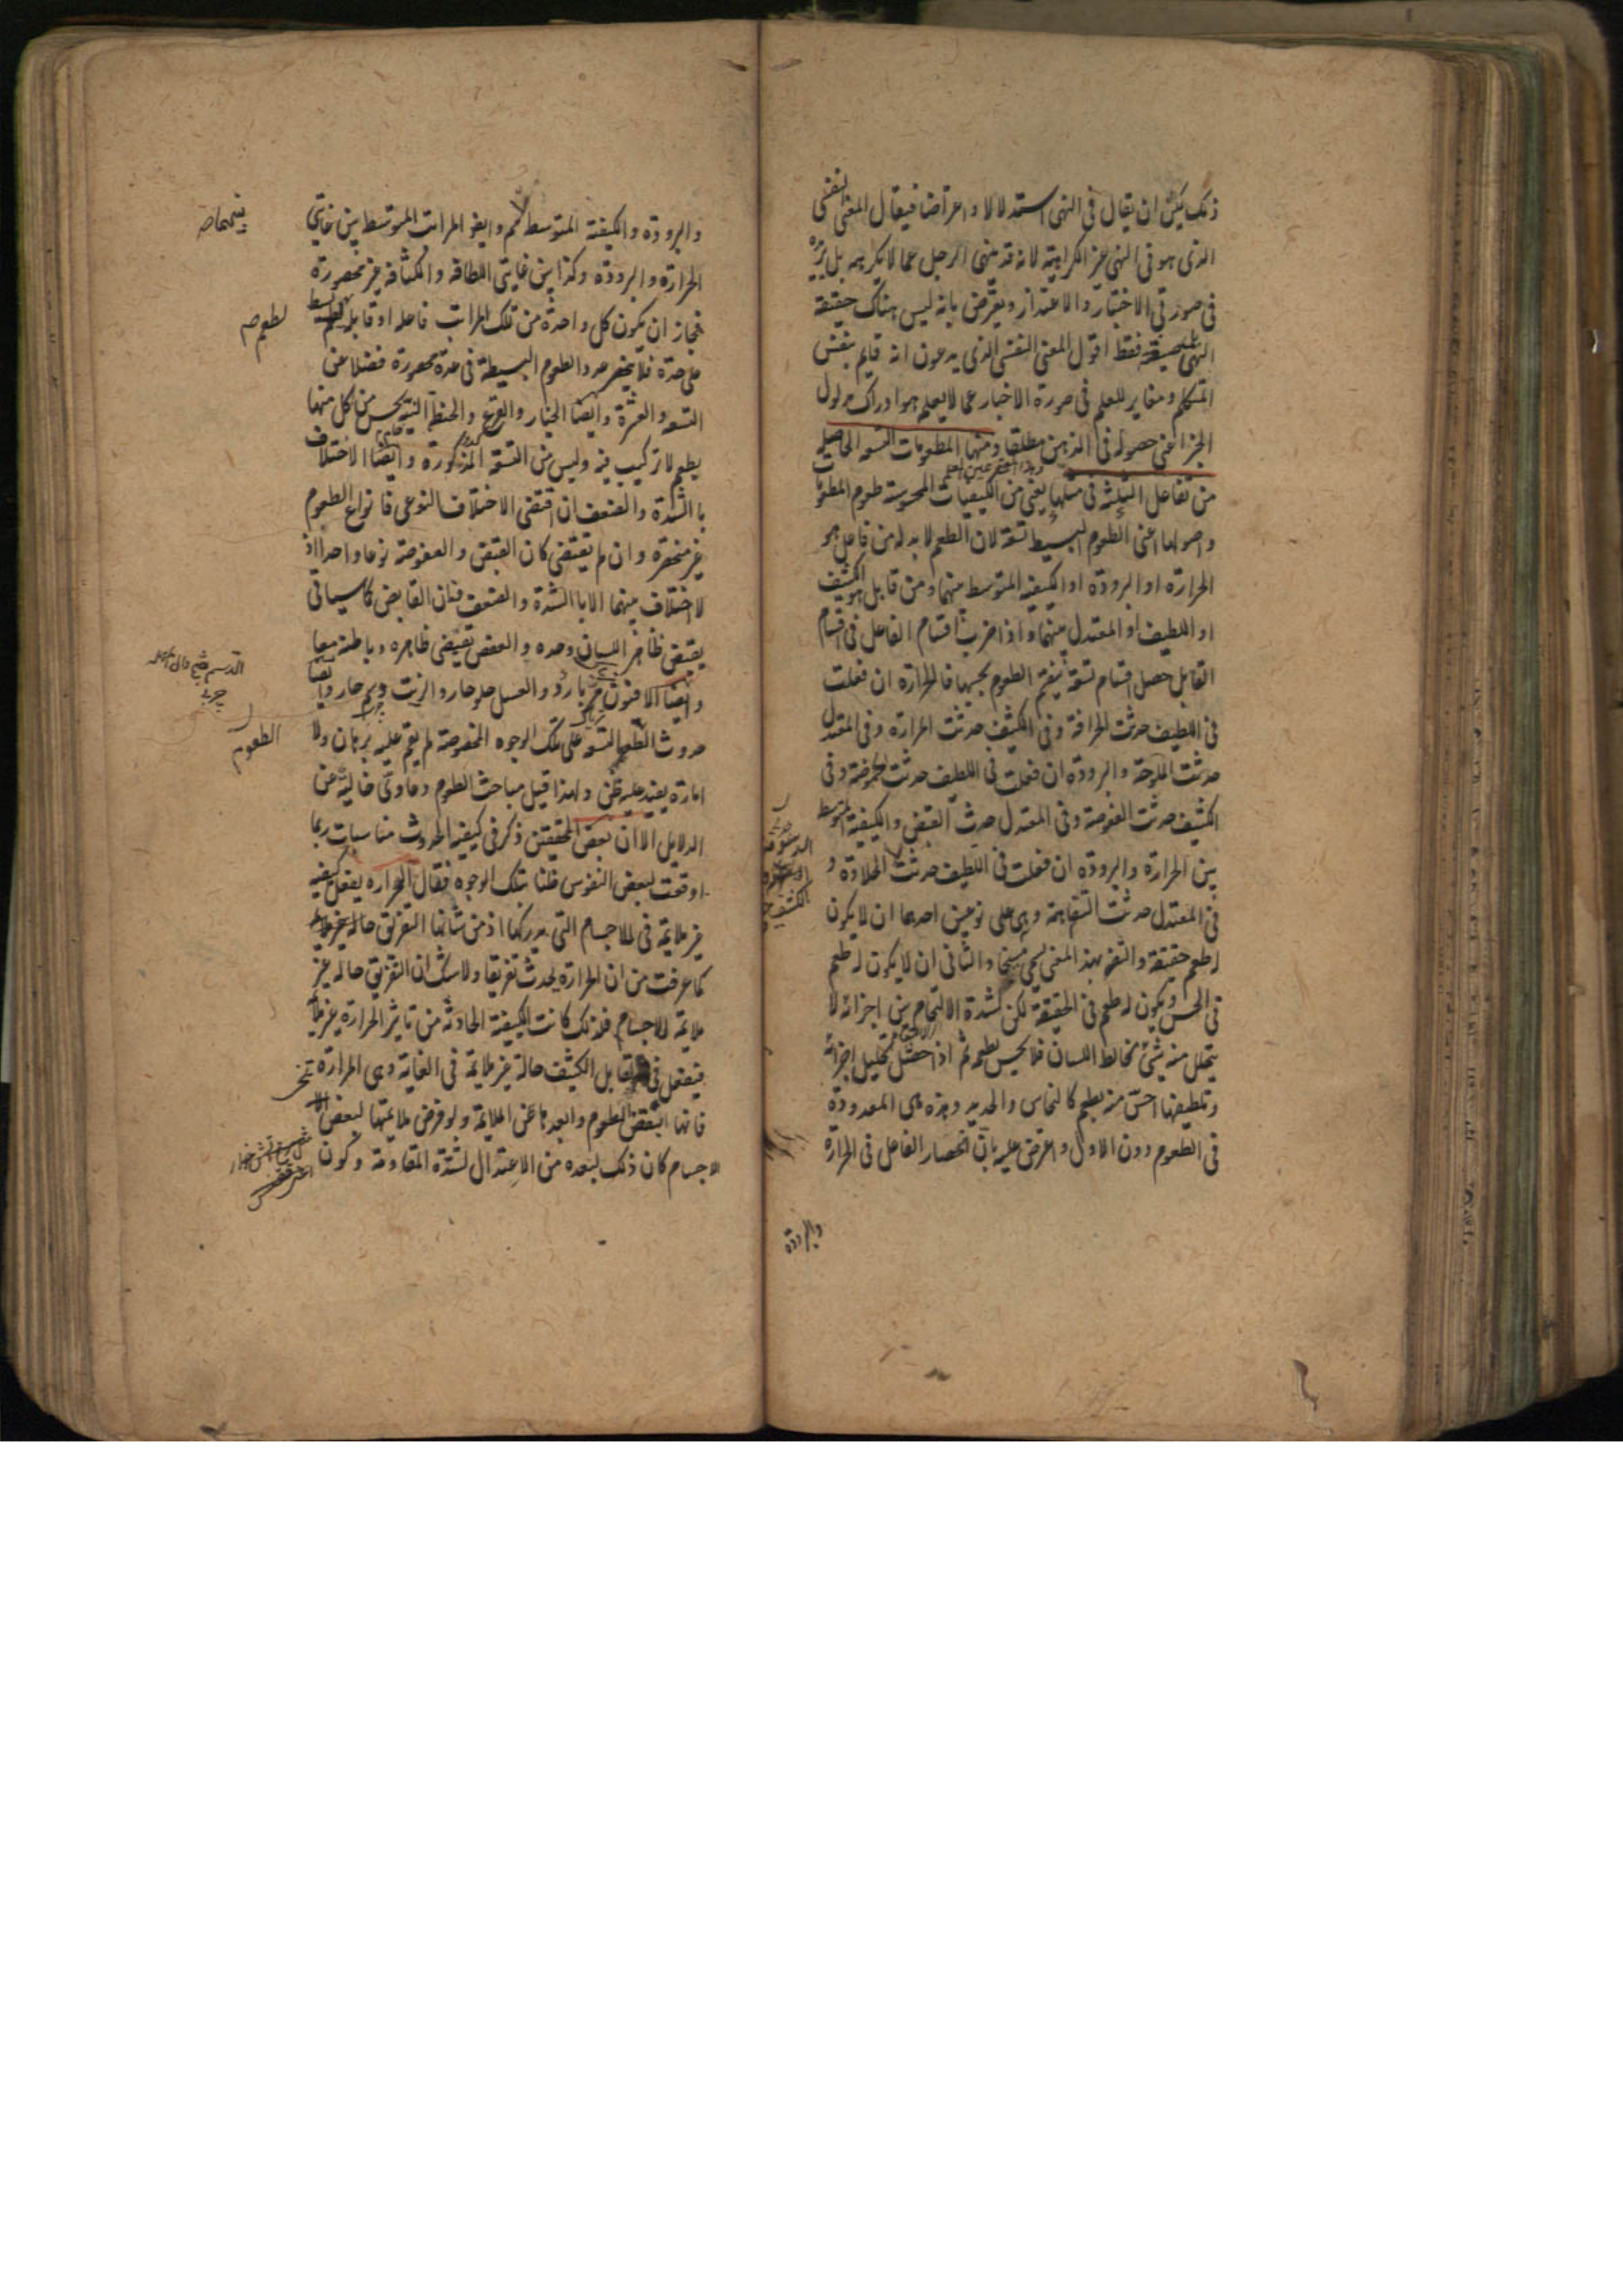 ذلك يمكن ان يقال فى النهى استدلالا واعراضا فيقال المعنى النفسى
الذى هو فى النهى غير الكراهية لانه قد ينهى الرجل عما لا يكرهه بل يريده
فى صورتى الاختبار والاعتذار ويعترض بانه ليس هناك حقيقة
النهى فقط اقول المعنى النفسى الذى يدعون انه قايم بنفس
المتكلم ومغاير للعلم فى صورة الاخبار عما لا يعلمه هو ادراك مدلول
الخبر اعنى حصوله فى الذهن مطلقا ومنها المطعومات التسعة الحاصلة
من تفاعل الثلثة فى مثلها يعنى من الكيفيات المحسوسة طعوم المطعومات
واصولها اعنى الطعوم البسيطة تسعة لان الطعم لا بد له من فاعل هو
الحرارة او البرودة او الكيفية المتوسطة بينهما ومن قابل هو الكثيف
او اللطيف او المعتدل بينهما واذا ضرب اقسام الفاعل فى اقسام
القابل حصل اقسام تسعة ينقسم الطعوم بحسبها فالحرارة ان فعلت
فى اللطيف حدثت الحرافة وفى الكثيف حدثت المرارة وفى المعتدل
حدثت الملوحة والبرودة ان فعلت فى اللطيف حدثت الحموضة وفى
الكثيف حدثت العفوصة وفى المعتدل حدث القبض والكيفية المتوسطة
بين الحرارة والبرودة ان فعلت فى اللطيف حدثت الحلاوة و
فى المعتدل حدثت التفاهة وهى على نوعين احدهما ان لا يكون
له طعم حقيقة والتفه بهذا المعنى يسمى مسيخا والثانى ان لا يكون له طعم
فى الحس ويكون له طعم فى الحقيقة لكن لشدة الالتحام بين اجزائه لا
يتحلل منه شئ يخالط اللسان فلا يحس بطعمه ثم اذا تحليل اجزائه
وتلطيفها احس منه بطعم كالنحاس والحديد وهذه هى المعدودة
فى الطعوم دون الاول واعترض عليه بان انحصار الفاعل فى الحرارة
والبرودة
والبرودة والكيفية المتوسطة وايضا المراتب المتوسطة بين غايتى
الحرارة والبرودة وكذا بين غايتى اللطافة والكثافة غير محصورة
فجاز ان يكون كل واحدة من تلك المراتب فاعلة او قابلة لطعم بسيط
على حدة فلا ينحصر عدد الطعوم البسيطة فى عدة محصورة فضلا عن
التسعة والعشرة وايضا الخيار والقرع والحنطة النية يحس من كل منها
بطعم لا تركيب فيه وليس من التسعة المذكورة وايضا الاختلاف
بالشدة والضعف ان اقتضى الاختلاف النوعى فانواع الطعوم
غير منحصرة وان لم يقتض كان القبض والعفوصة نوعا واحدا اذ
لا اختلاف بينهما الا بالشدة والضعف فان القابض كما سياتى
يقبض ظاهر اللسان وحده والعفص يقبض ظاهره وباطنه معا
وايضا الافيون مر بارد والعسل حلو حار والزيت دسم حار وايضا
حدوث الطعوم التسعة على تلك الوجوه المخصوصة لم يقم عليه برهان ولا
امارة يفيد عليه ظن ولهذا قيل مباحث الطعوم دعاوى خالية عن
الدلايل الا ان بعض المحققين ذكر فى كيفية الحدوث مناسبات ربما
اوقعت لبعض النفوس ظنا بتلك الوجوه فقال الحرارة يفعل كيفية
غير ملايمة فى الاجسام التى يدركها اذ من شانها التفريق
كما عرفت من ان الحرارة يحدث تفريقا ولا شك ان التفريق حالة غير
ملايمة للاجسام فلذلك كانت الكيفية الحادثة من تاثير الحرارة غير ملايمة
فيفعل فى القابل الكثيف حالة غير ملايمة فى الغاية وهى المرارة
فانها ابغض الطعوم وابعدها عن الملايمة ولو فرض ملايمتها لبعض
الاجسام كان ذلك لبعده من الاعتدال لشدة المقاومة وكون
لطعم
الطعوم